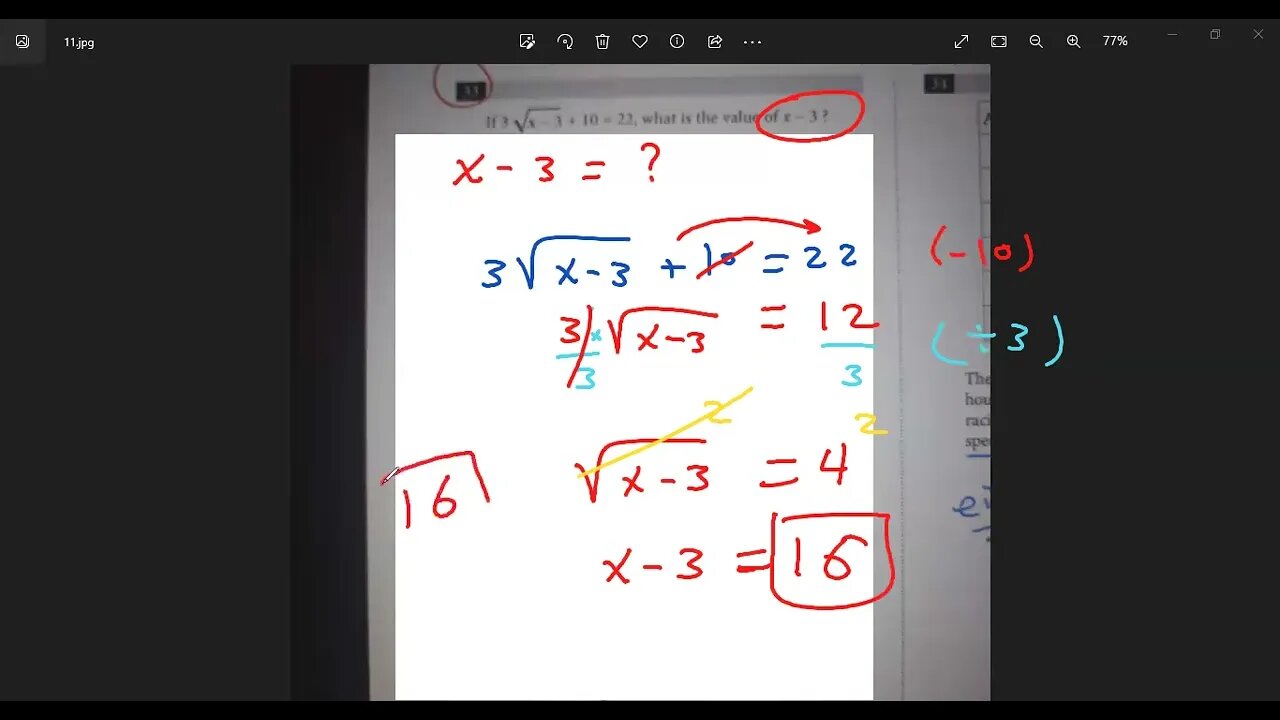 11.jpg
77%
33
34
If 3√x – 3 + 10 = 22, what is the value of x – 3 ?
x - 3 = ?
3√x-3 + 10 = 22 (-10)
3 × √x-3 = 12 (÷3)
3 3
The
hou
raci
spe
2 2
√x-3 = 4
16
x-3 = 16